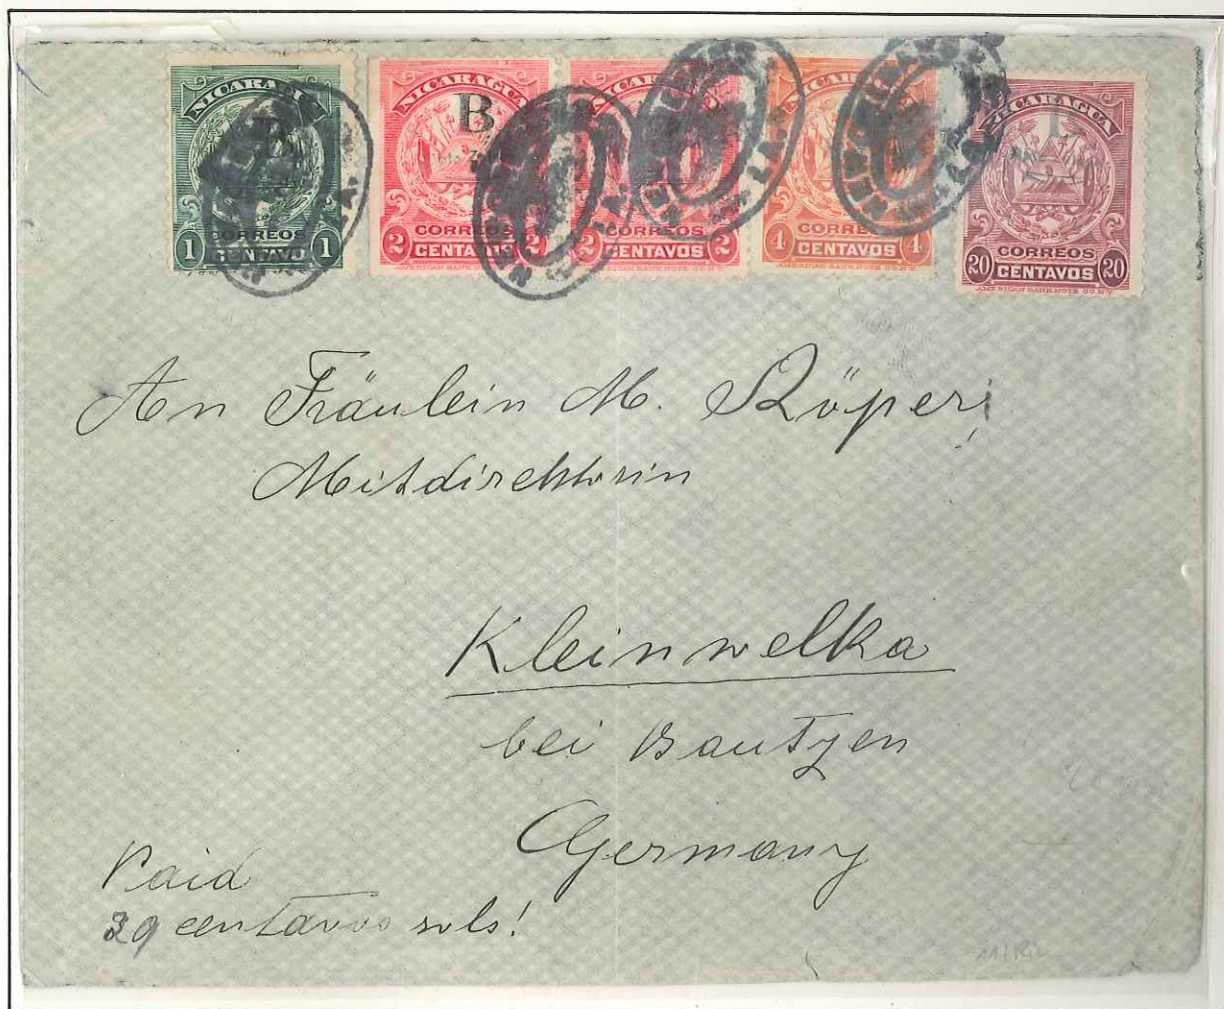 NICARAGUA B CORREOS 1 CENTAVO 1
NICARAGUA B CORREOS 2 CENTAVOS 2
AMERICAN BANK NOTE CO. N.Y.
CORREOS 2 CENTAVOS 2
CORREOS 4 CENTAVOS 4
NICARAGUA CORREOS 20 CENTAVOS 20
AMERICAN BANK NOTE CO. N.Y.
An Fräulein M. Röper,
Mitdirektorin
Kleinwelka
bei Bautzen
Germany
Paid
29 centavos sols!